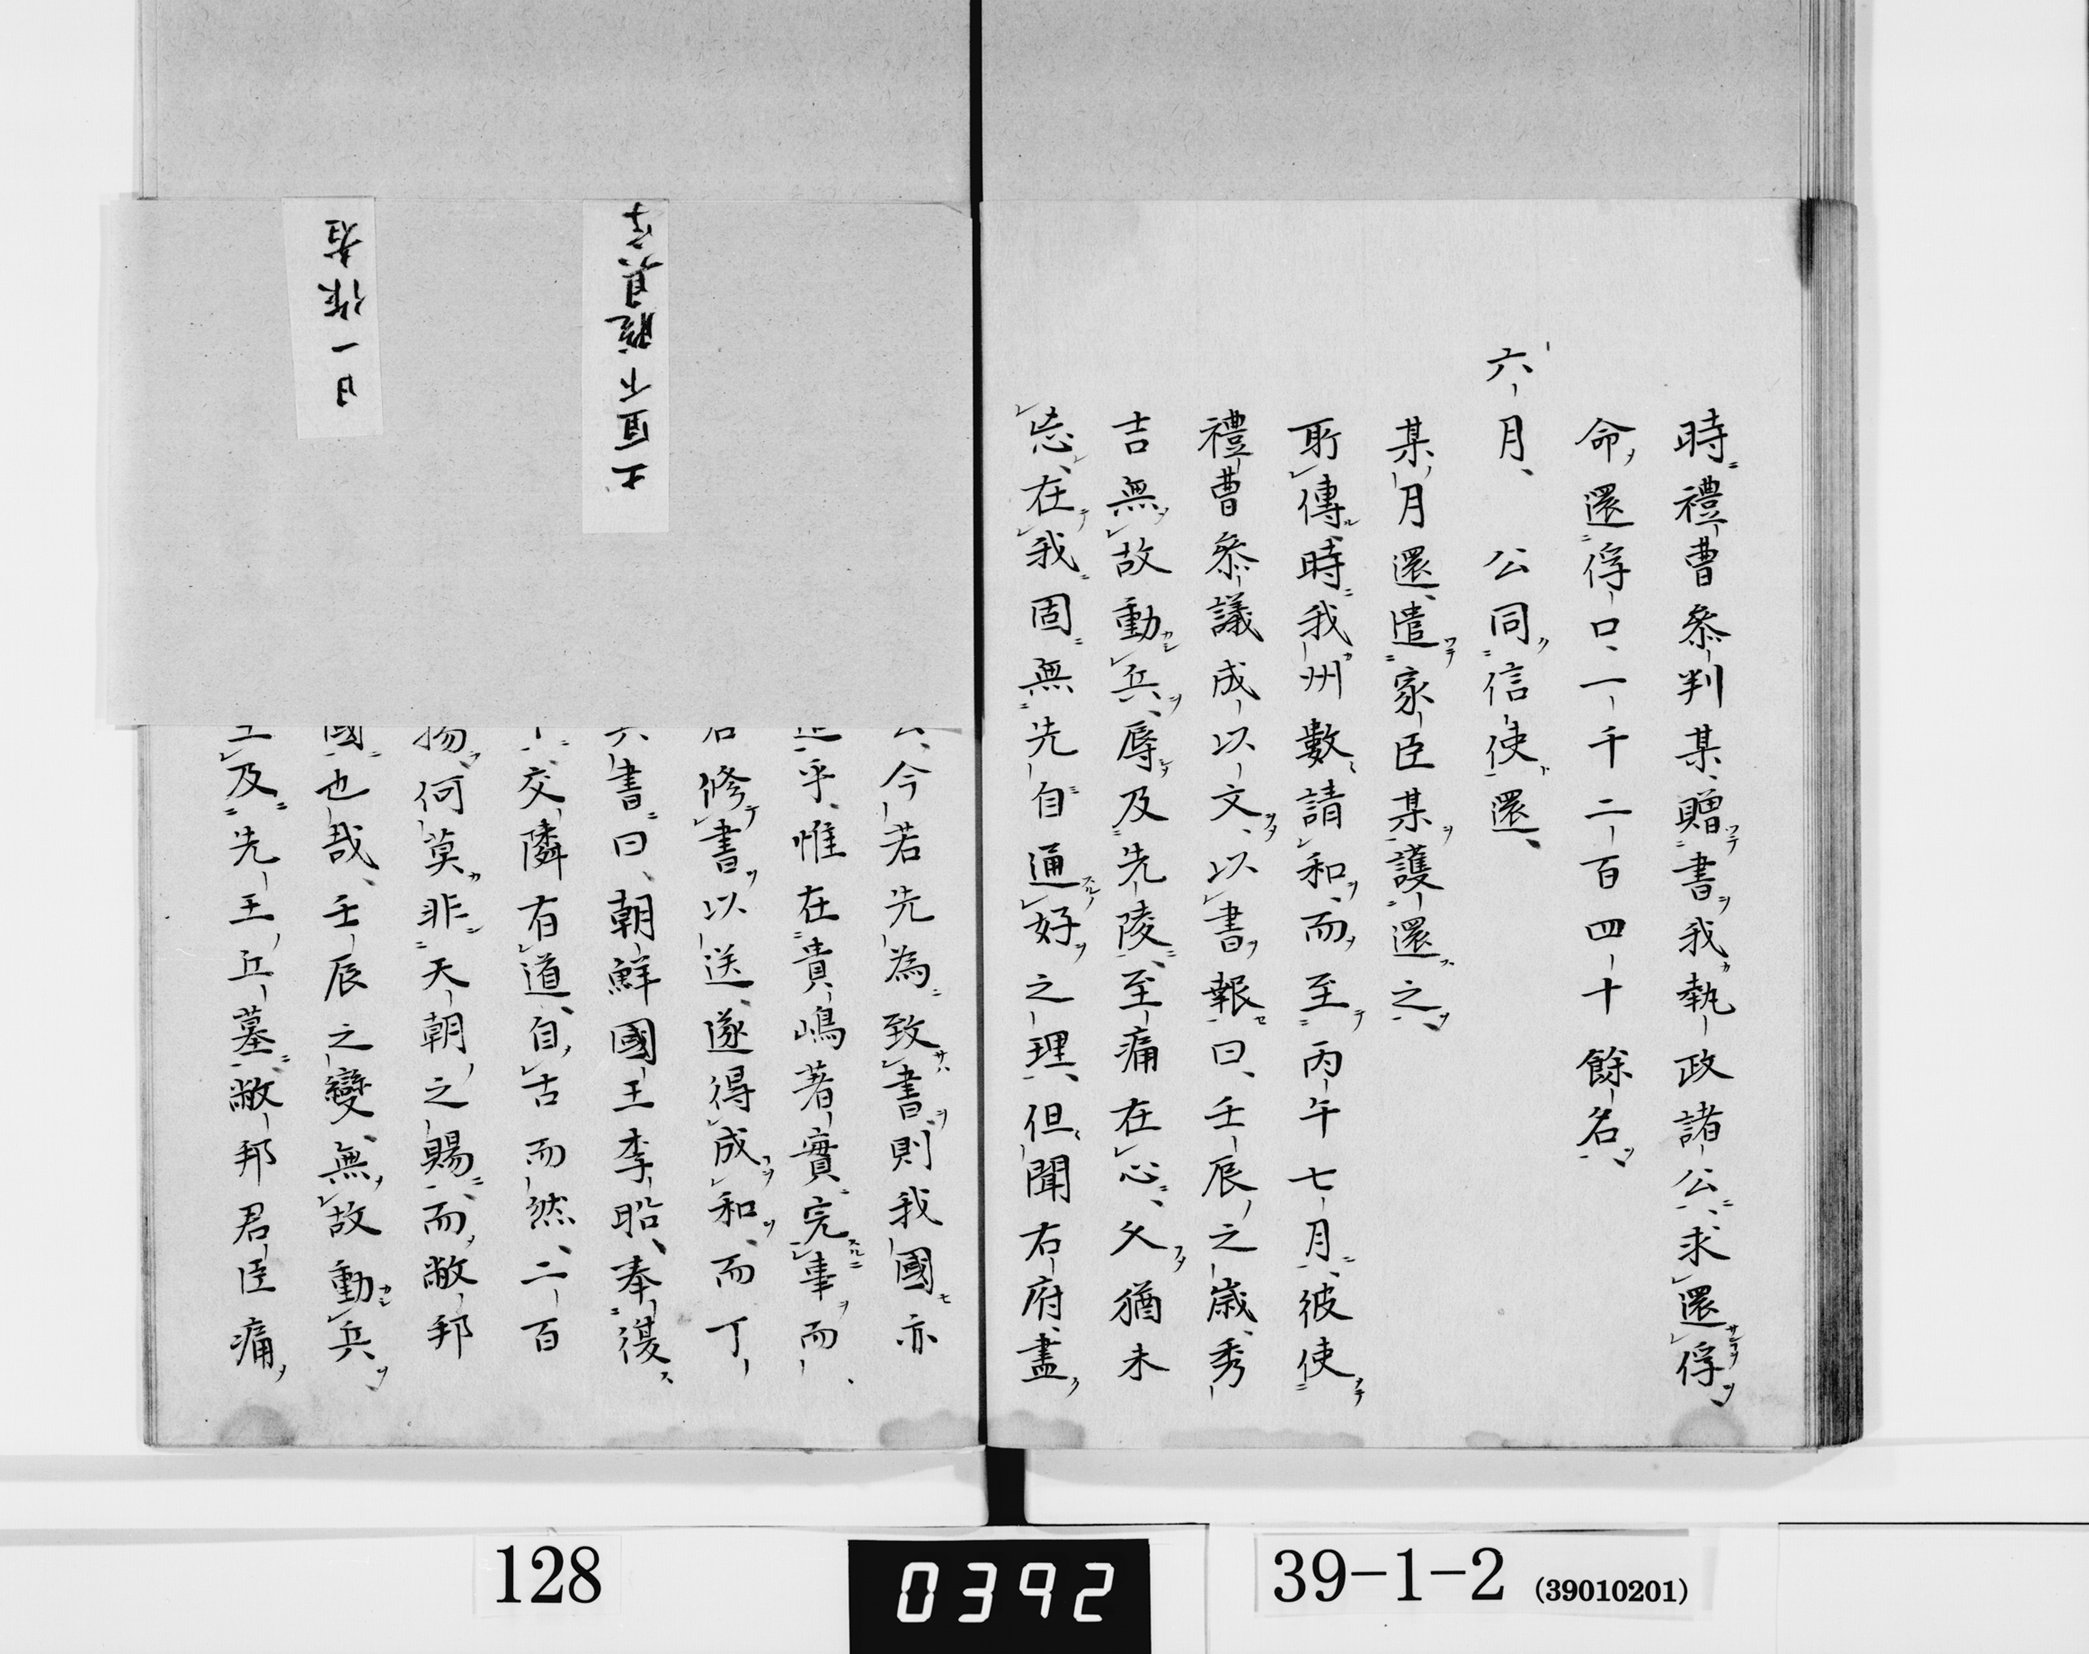 時禮曹參判某贈書我執政諸公求還俘
命還俘口一千二百四十餘名
六月 公同信使還
某月還遣家臣某護還之
所傳時我州數請和而至丙午七月彼使
禮曹參議成以文以書報曰壬辰之歳秀
吉無故動兵辱及先陵至痛在心久猶未
忘在我固無先自通好之理但聞右府盡
今若先為致書則我國亦
乎惟在貴嶋著實完事而
修書以送遂得成和而丁
書曰朝鮮國王李昖奉復
交隣有道自古而然二百
揚何莫非天朝之賜而敝邦
國也哉壬辰之變無故動兵
及先王丘墓敝邦君臣痛
日一作者
128
0392
39-1-2 (39010201)